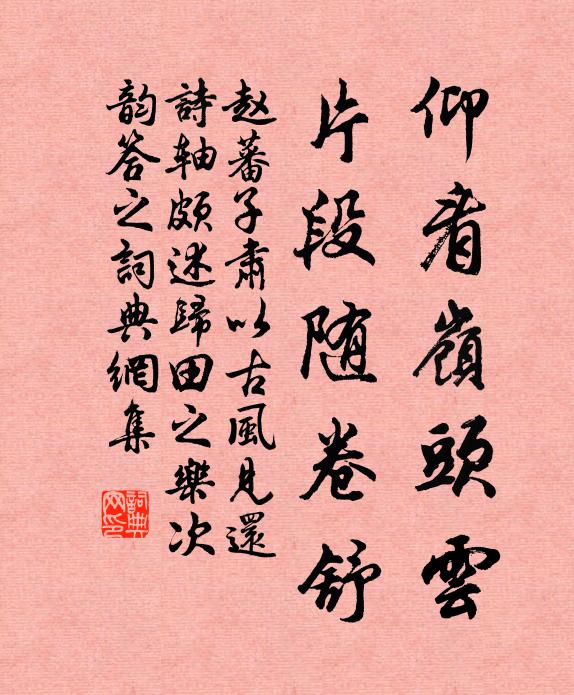 仰看嶺頭雲
片段随卷舒
赵蕃子肅以古風見還
詩轴頗述歸田之樂次
韵答之詞典網集
詞典网印